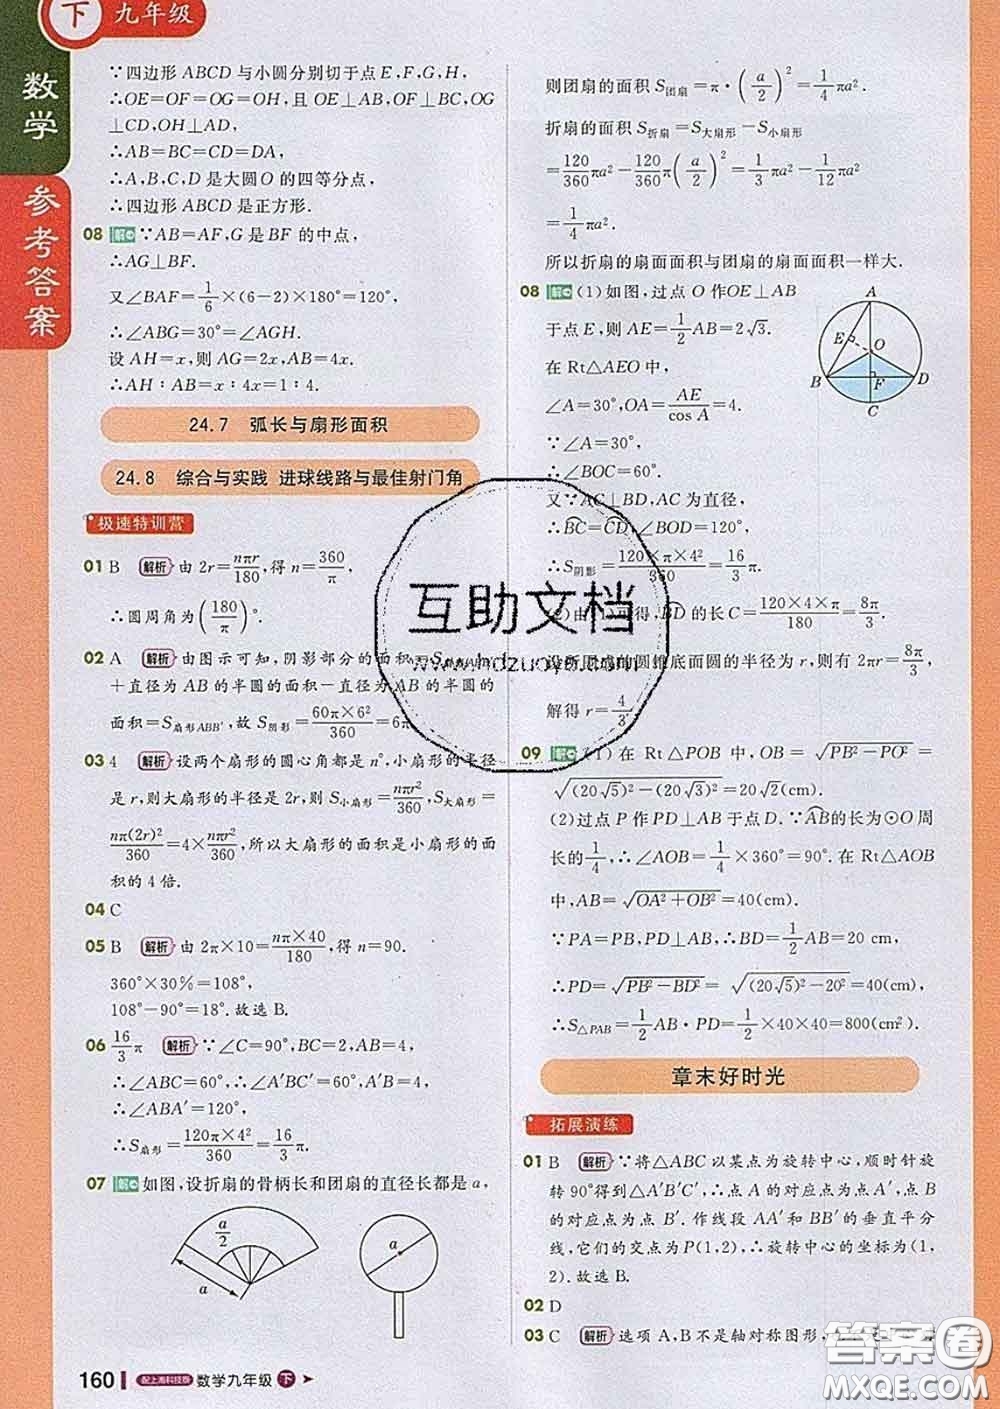 下 九年级
数学
参考答案
∵四边形 ABCD 与小圆分别切于点 E,F,G,H,
∴OE=OF=OG=OH,且 OE⊥AB,OF⊥BC,OG
⊥CD,OH⊥AD,
∴AB=BC=CD=DA,
∴A,B,C,D 是大圆 O 的四等分点,
∴四边形 ABCD 是正方形.
08 解 ∵AB=AF,G 是 BF 的中点,
∴AG⊥BF.
又∠BAF=1/6×(6-2)×180°=120°,
∴∠ABG=30°=∠AGH.
设 AH=x,则 AG=2x,AB=4x.
∴AH∶AB=x∶4x=1∶4.
24.7 弧长与扇形面积
24.8 综合与实践 进球线路与最佳射门角
极速特训营
01 B 解析 由 2r=nπr/180,得 n=360/π,
∴圆周角为(180/π)°.
02 A 解析 由图示可知,阴影部分的面积=S
+直径为 AB 的半圆的面积-直径为 AB 的半圆的
面积=S扇形ABB′,故 S阴影=60π×6²/360=6π
03 4 解析 设两个扇形的圆心角都是 n°,小扇形的半径
是 r,则大扇形的半径是 2r,则 S小扇形=nπr²/360,S大扇形=
nπ(2r)²/360=4×nπr²/360,所以大扇形的面积是小扇形的面
积的 4 倍.
04 C
05 B 解析 由 2π×10=nπ×40/180,得 n=90.
360°×30%=108°,
108°-90°=18°.故选 B.
06 16/3π 解析 ∵∠C=90°,BC=2,AB=4,
∴∠ABC=60°,∴∠A′BC′=60°,A′B=4,
∴∠ABA′=120°,
∴S扇形=120π×4²/360=16/3π.
07 解 如图,设折扇的骨柄长和团扇的直径长都是 a,
a/2
a
a
则团扇的面积 S团扇=π·(a/2)²=1/4πa².
折扇的面积 S折扇=S大扇形-S小扇形
=120/360πa²-120/360π(a/2)²=1/3πa²-1/12πa²
=1/4πa².
所以折扇的扇面面积与团扇的扇面面积一样大.
08 解 (1)如图,过点 O 作OE⊥AB
于点 E,则 AE=1/2AB=2√3.
在 Rt△AEO 中,
∠A=30°,OA=AE/cos A=4.
∵∠A=30°,
∴∠BOC=60°.
又∵AC⊥BD,AC 为直径,
∴BC=CD,∠BOD=120°,
∴S阴影=120×π×4²/360=16/3π.
(2)由(1)可得,BD 的长 C=120×4×π/180=8π/3
设所围成的圆锥底面圆的半径为 r,则有 2πr=8π/3,
解得 r=4/3.
A
E
O
B
F
D
C
09 解 (1)在 Rt△POB 中,OB=√PB²-PO²=
√(20√5)²-(20√3)²=20√2(cm).
(2)过点 P 作 PD⊥AB 于点 D.∵AB的长为⊙O 周
长的1/4,∴∠AOB=1/4×360°=90°.在 Rt△AOB
中,AB=√OA²+OB²=40(cm).
∵PA=PB,PD⊥AB,∴BD=1/2AB=20 cm,
∴PD=√PB²-BD²=√(20√5)²-20²=40(cm),
∴S△PAB=1/2AB·PD=1/2×40×40=800(cm²).
章末好时光
拓展演练
01 B 解析 ∵将△ABC 以某点为旋转中心,顺时针旋
转 90°得到△A′B′C′,∴点 A 的对应点为点 A′,点 B
的对应点为点 B′.作线段 AA′和 BB′的垂直平分
线,它们的交点为 P(1,2),∴旋转中心的坐标为(1,
2).故选 B.
02 D
03 C 解析 选项 A,B 不是轴对称图形,
160 配上海科技版 数学九年级 下
互助文档
www.hdzuoye.com
答案圈
MXQE.COM